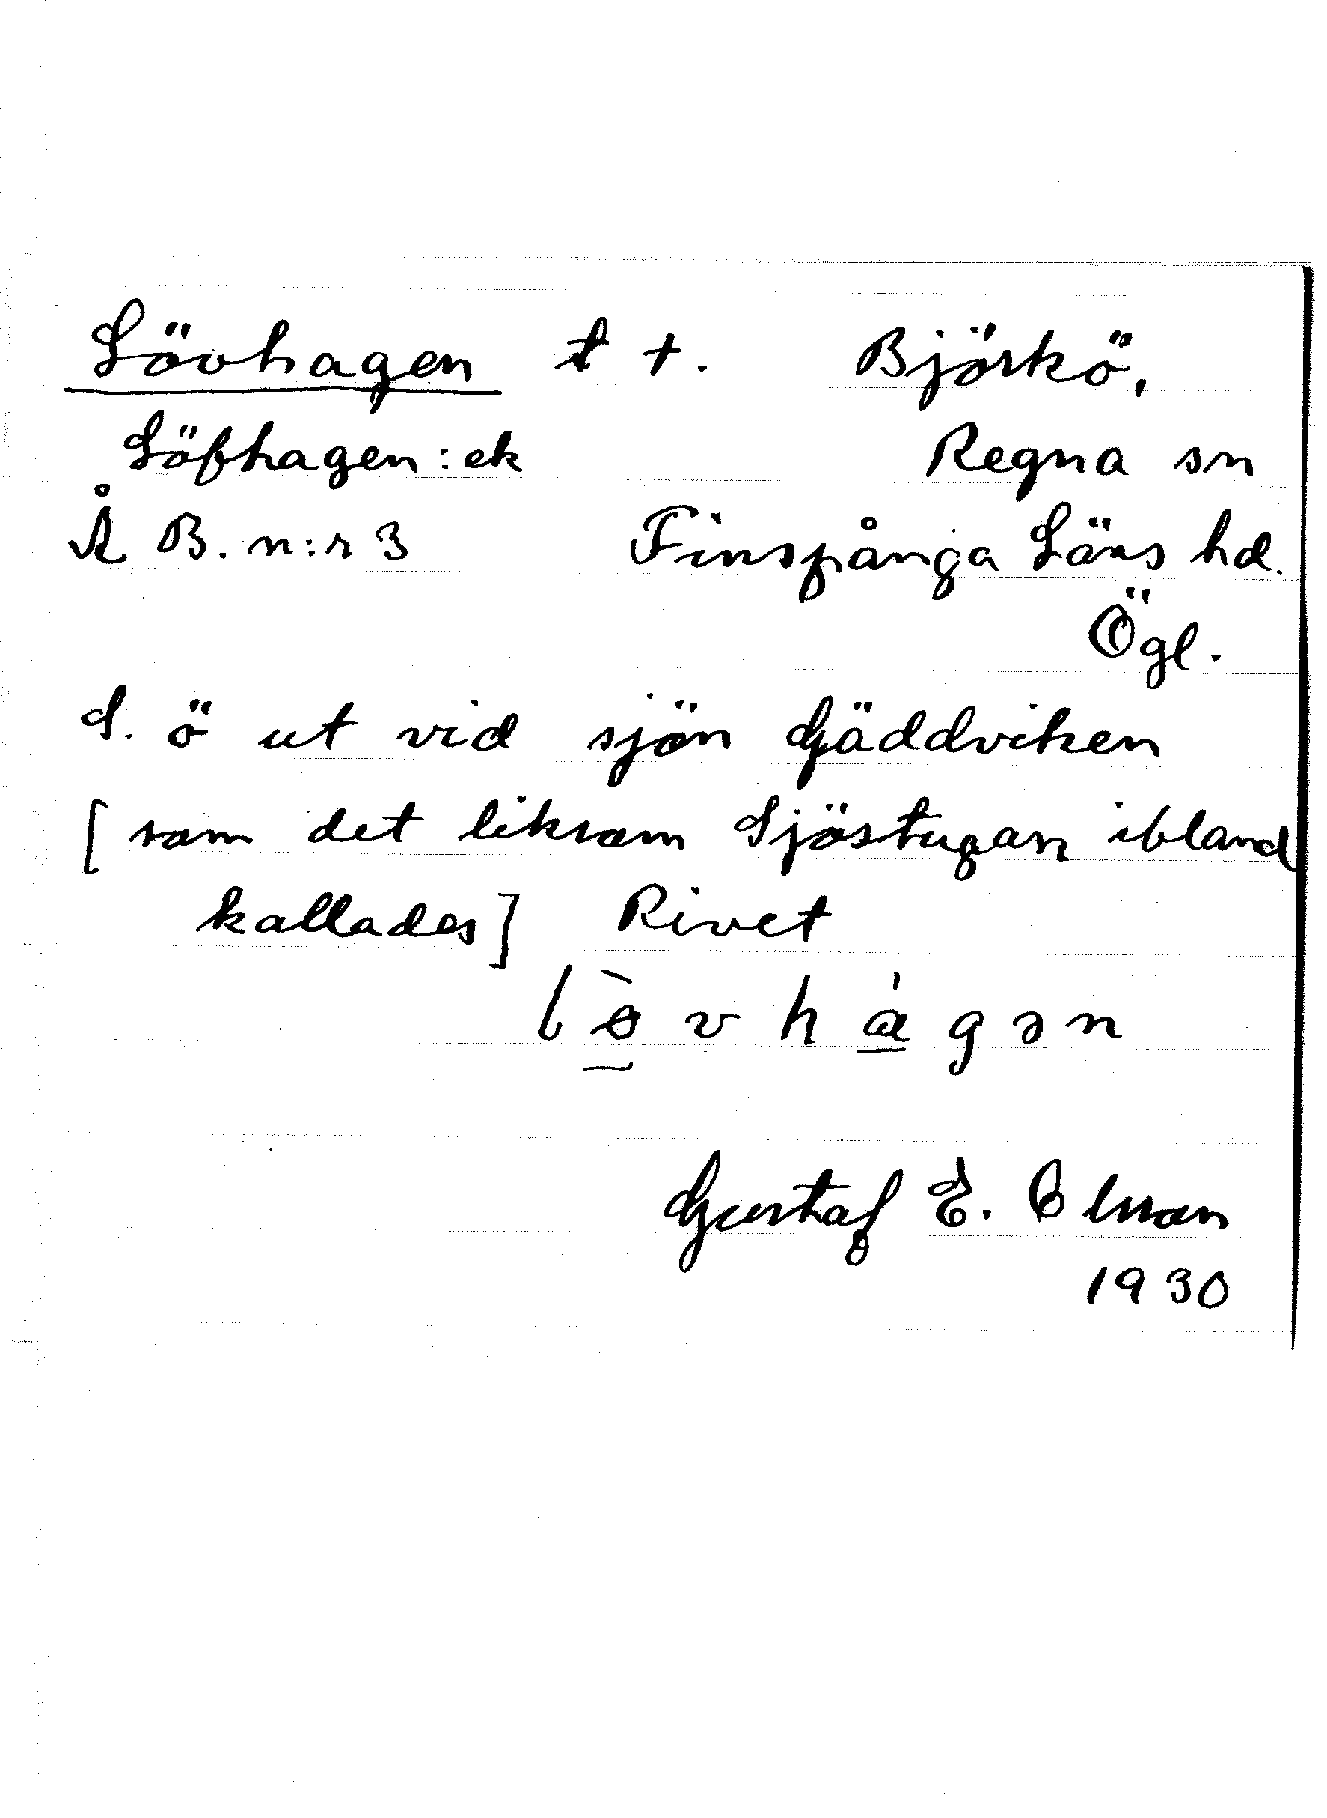 Lövhagen t †. Björkö,
Löfhagen: ek Regna sn
Å B. n:r 3 Finspånga Läns hd.
Ögl.
S. ö ut vid sjön Gäddviken
[som det liksom Sjöstugan ibland
kallades] Rivet
lò̠vhá̠gən
Gustaf E.
1930